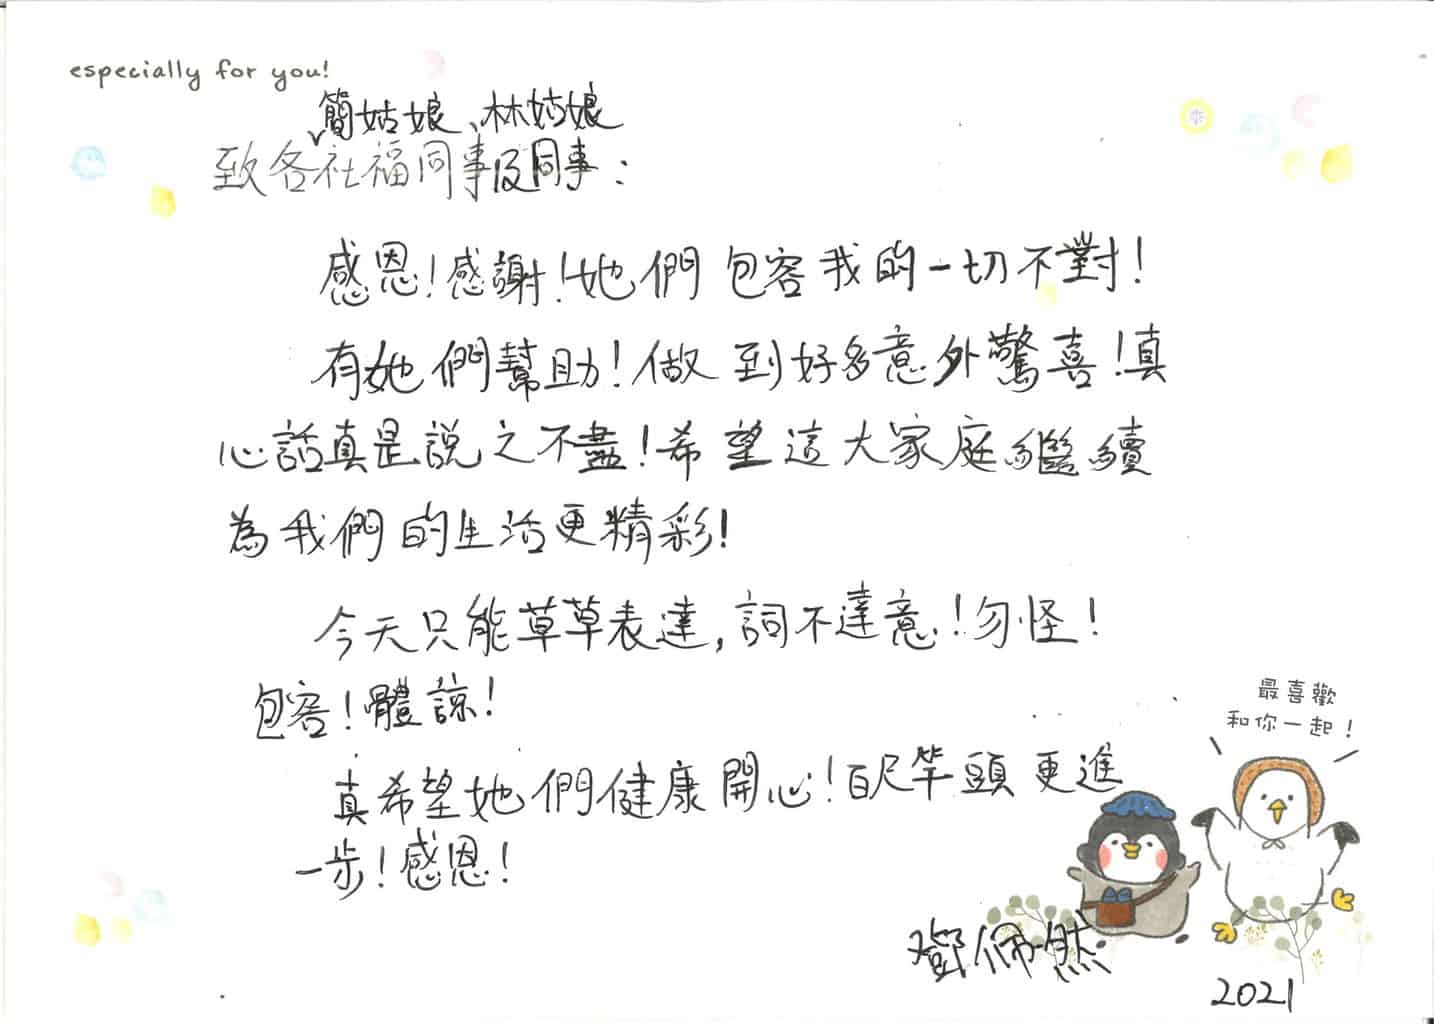 especially for you!
簡姑娘、林姑娘
致各社福同事及同事：
感恩！感謝！她們包容我的一切不對！
有她們幫助！做到好多意外驚喜！真
心話真是說之不盡！希望這大家庭繼續
為我們的生活更精彩！
今天只能草草表達，詞不達意！勿怪！
包容！體諒！
真希望她們健康開心！百尺竿頭更進
一步！感恩！
最喜歡
和你一起！
鄧佩然
2021